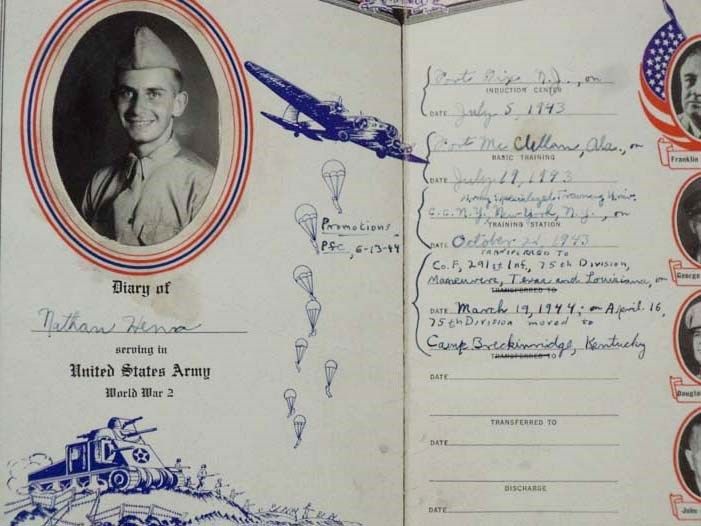 Diary of
Nathan
serving in
United States Army
World War 2
Promotions
PFC, 6-13-44
Forts Dix N.J., on
INDUCTION CENTER
DATE July 5, 1943
Fort Mc Clellan, Ala., on
BASIC TRAINING
DATE July 19, 1943
Army Specialized Training Univ.
C.C.N.Y. New York, N.Y., on
TRAINING STATION
DATE October 1943
TRANSFERRED TO
Co. F, 291st Inf., 75th Division,
Maneuvers, Texas and Louisiana, on
TRANSFERRED TO
DATE March 19, 1944; on April 16,
75th Division moved to
Camp Breckinridge, Kentucky
TRANSFERRED TO
DATE
TRANSFERRED TO
DATE
DISCHARGE
DATE
Franklin
George
Dougla
John